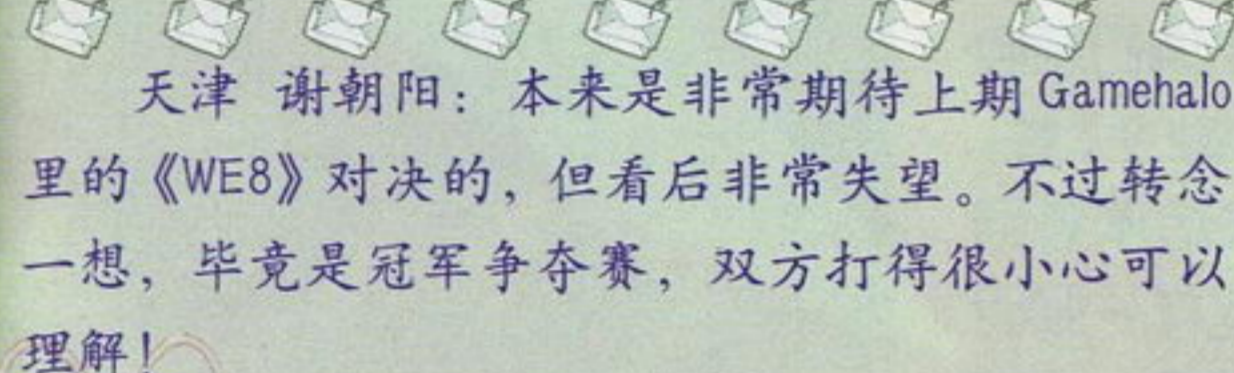 天津 谢朝阳：本来是非常期待上期 Gamehalo
里的《WE8》对决的，但看后非常失望。不过转念
一想，毕竟是冠军争夺赛，双方打得很小心可以
理解！